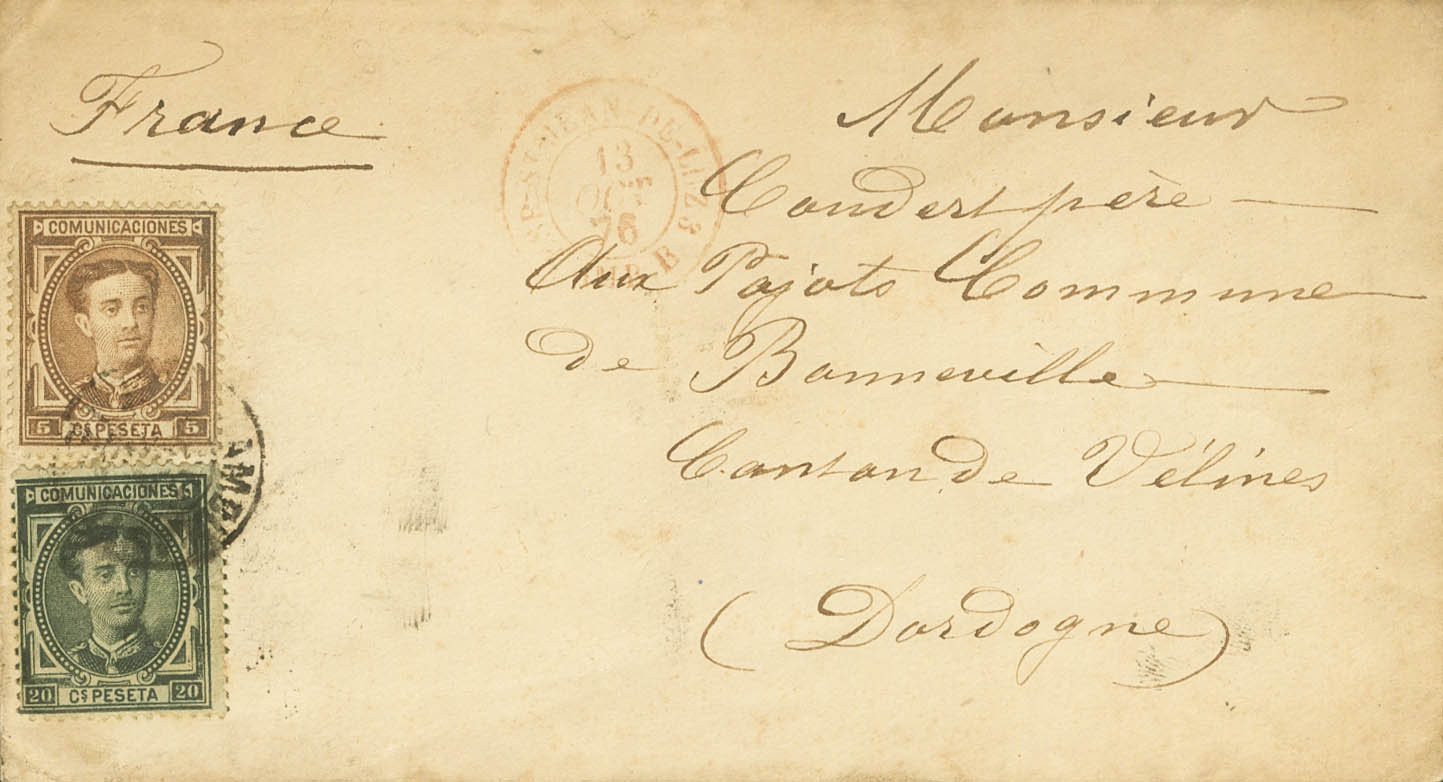 France
Monsieur
Coudert père
Aux Pajots Commune
de Bonneville
Canton de Vélines
(Dordogne)
ST-JEAN-DE-LUZ 3
13
OCT
76
B
COMUNICACIONES
5 Cs PESETA 5
COMUNICACIONES
20 Cs PESETA 20